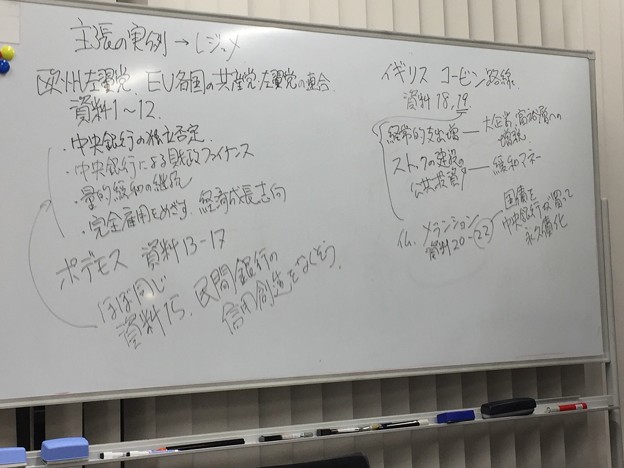 主張の実例→レジュメ
欧州左翼党、EU各国の共産党・左翼党の連合
資料1~12
・中央銀行の独立否定
・中央銀行による財政ファイナンス
・量的緩和の継続
・完全雇用をめざす、経済成長志向
ポデモス 資料13-17
ほぼ同じ
資料15、民間銀行の
信用創造をなくそう、
イギリス コービン路線
資料18,19
経常的支出増 ― 大企業、富裕層への
増税
ストックの建設の
公共投資 ― 緩和マネー
仏、メランション
資料20~22
国債を
中央銀行が買って
永久債化